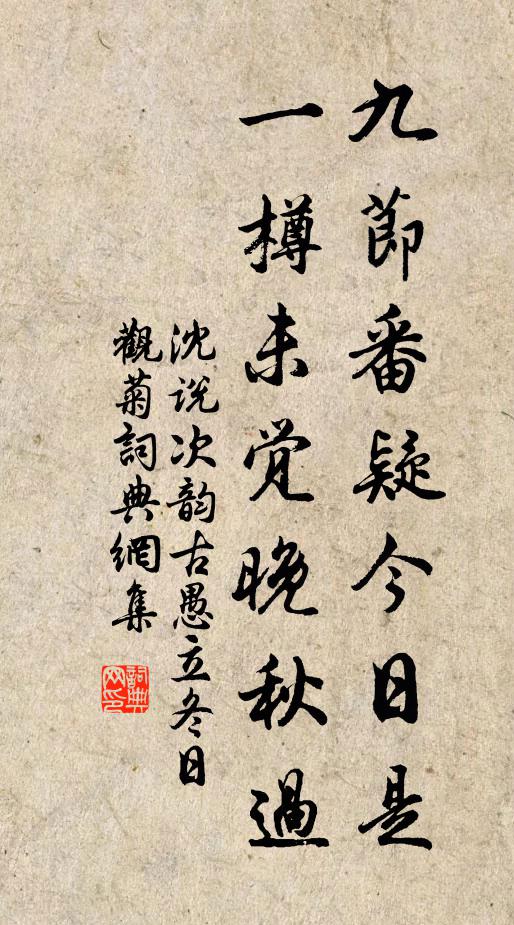 九節番疑今日是
一樽未覺晚秋過
沈説次韵古愚立冬日
觀菊詞典網集
詞典
网印